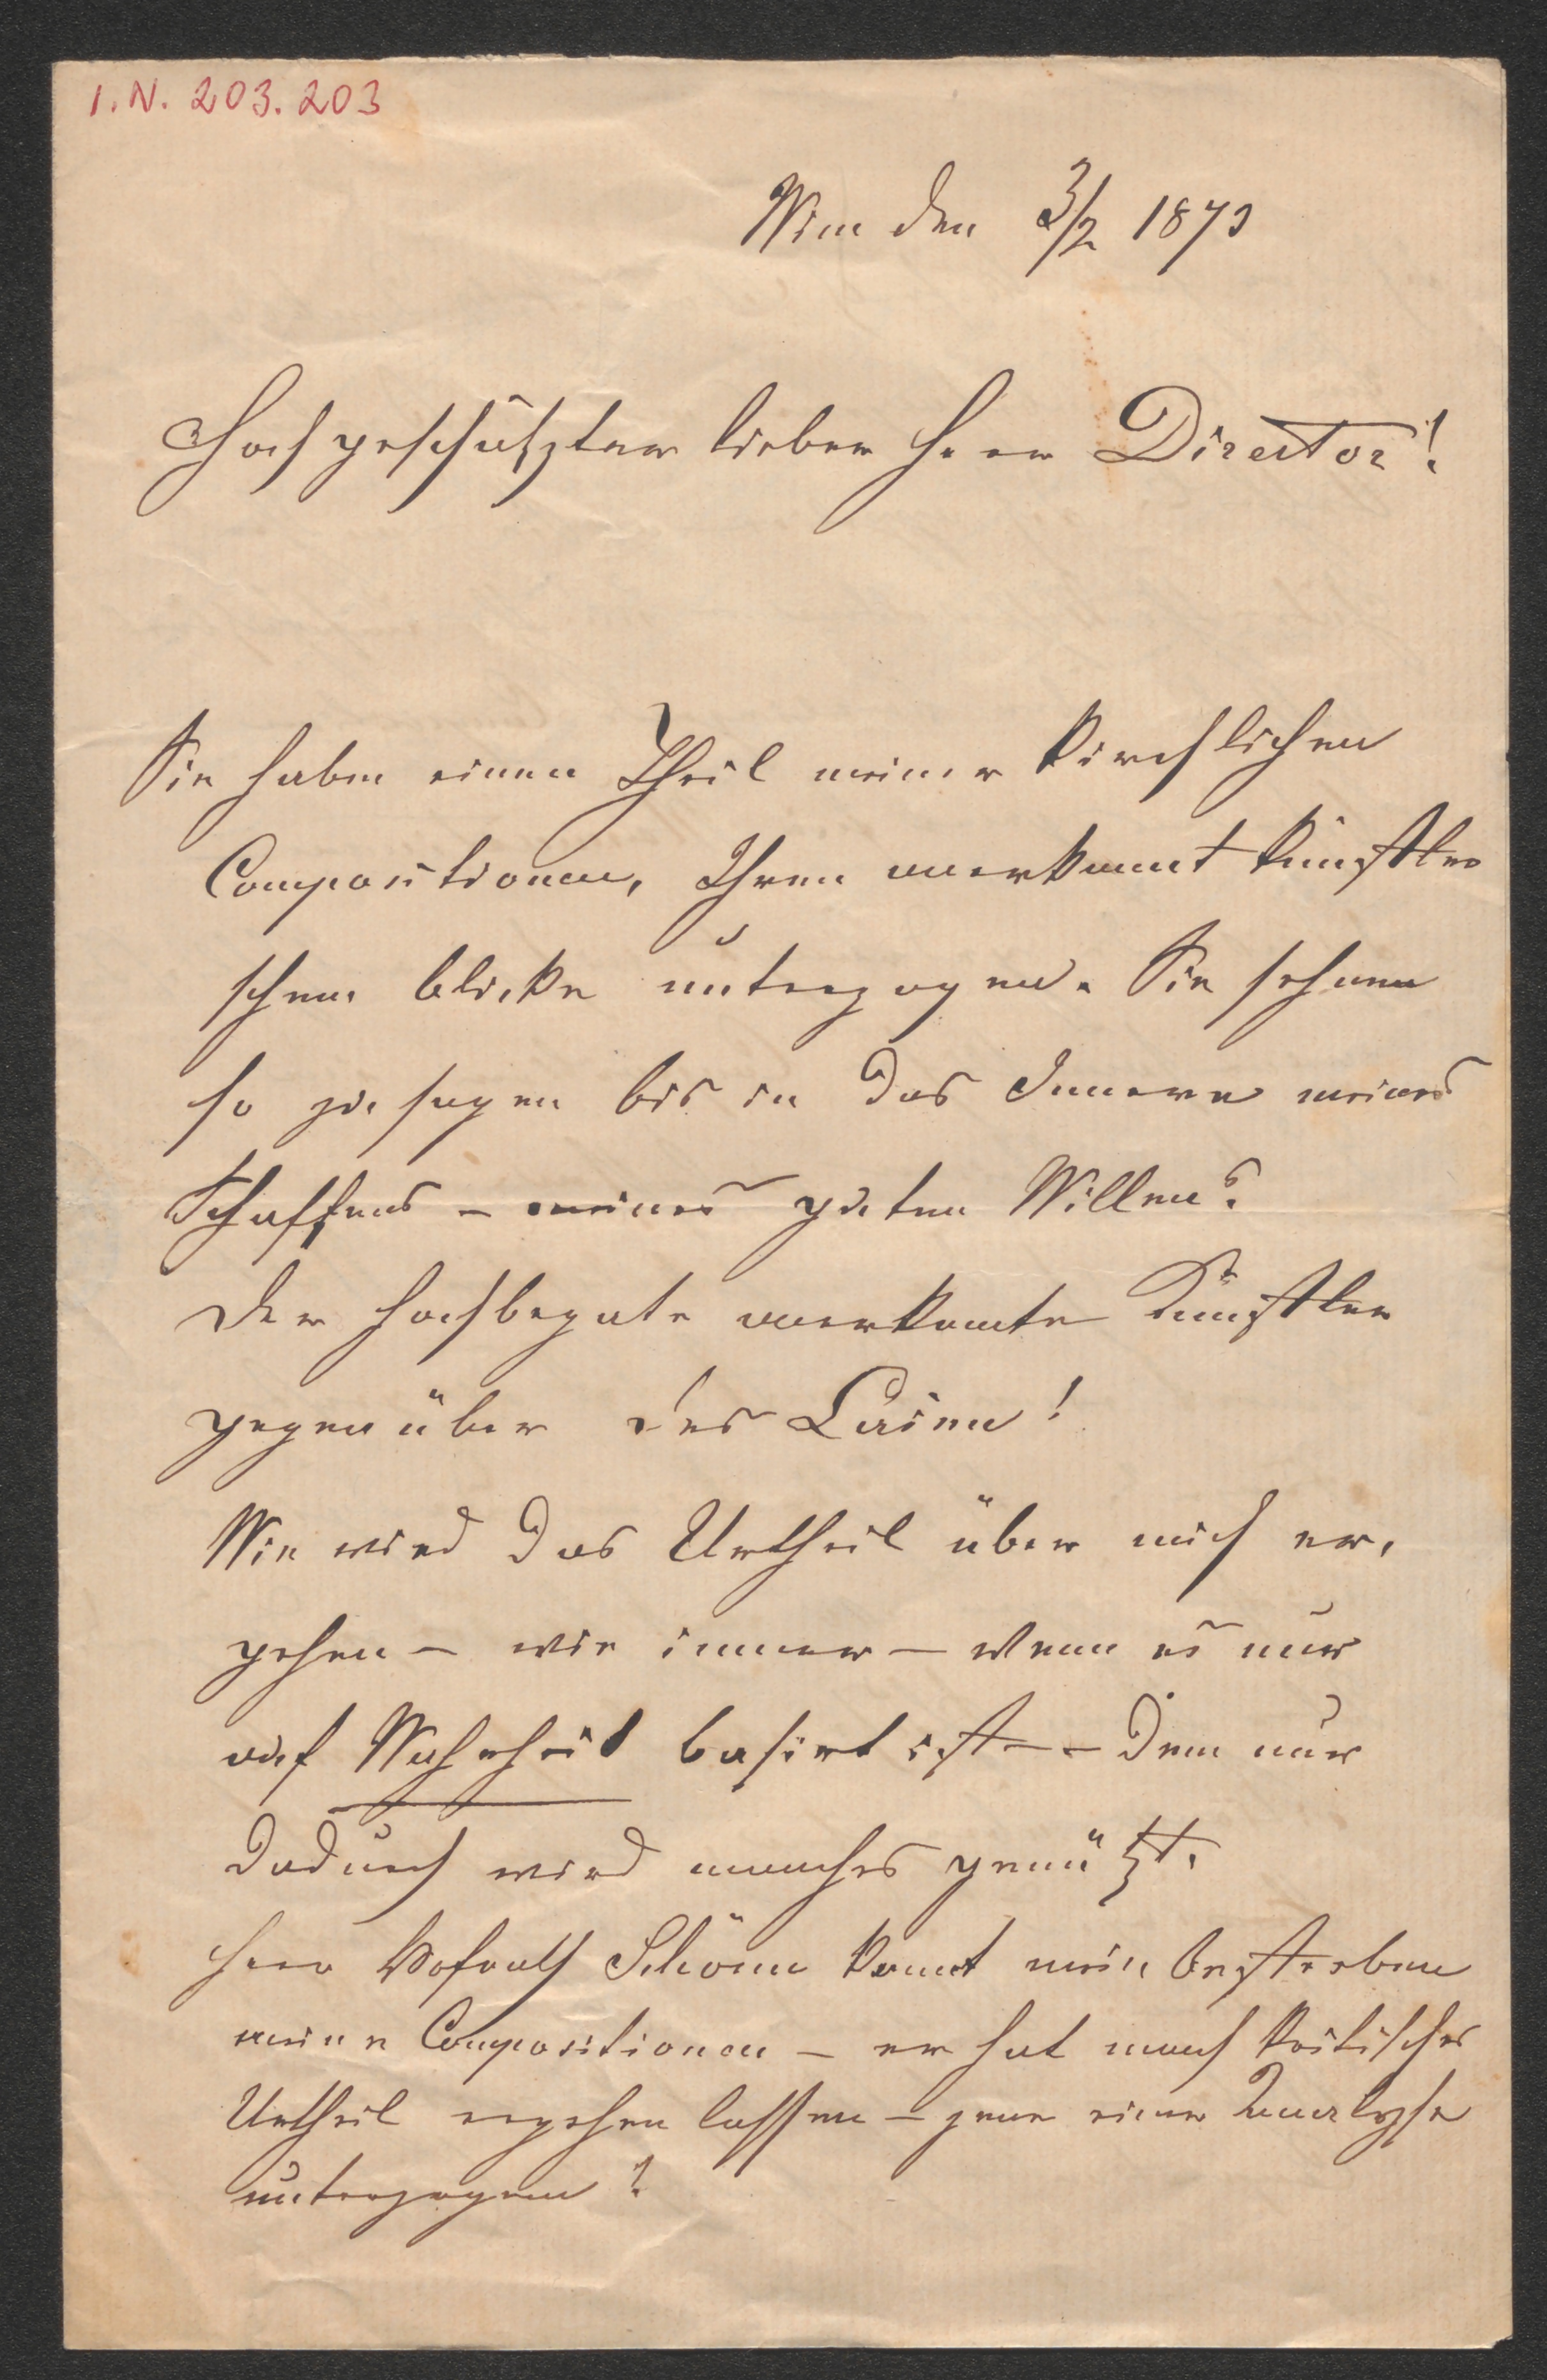 I.N. 203.203
Wien den 3/2 1873
Hochgeschätzter lieber Herr Director!
Sie haben einen Theil meiner kirchlichen
Compositionen, Ihren anerkannt künstler
schen blicke unterzogen. Sie sehnen
so zu sagen bis in das Innere meines
Schaffens – meines guten Willens.
Der hochbegabte anerkannte Künstler
gegenüber des Laien!
Wie wird das Urtheil über mich er,
gehen – wie immer – wenn es nur
auf Wahrheit basirt ist – – denn nur
dadurch wird manches genützt.
Herr Hofrath Schönn kennt mein bestreben
meine Compositionen – er hat manch kritisches
Urtheil ergehen lassen – jene einer Analyse
unterzogen!